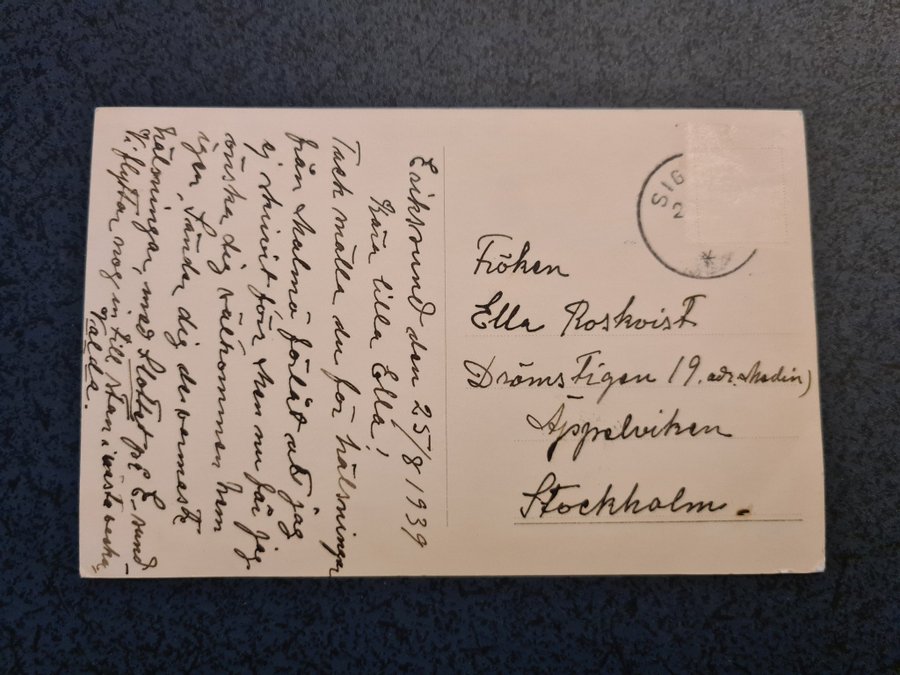 Eriksund den 25/8 1939
Kära lilla Ella!
Tack snälla du för hälsningar
från Malmö förlåt att jag
ej skrivit förr Men nu får jag
önska dig välkommen hem
igen, Sänder dig de varmaste
hälsningar, med Slottet på E-sund-
Vi flyttar nog in till stan i nästa vecka,
Valda.
SIG
2
Fröken
Ella Roskvist
Drömstigen 19. adr. Medin)
Äppelviken
Stockholm.